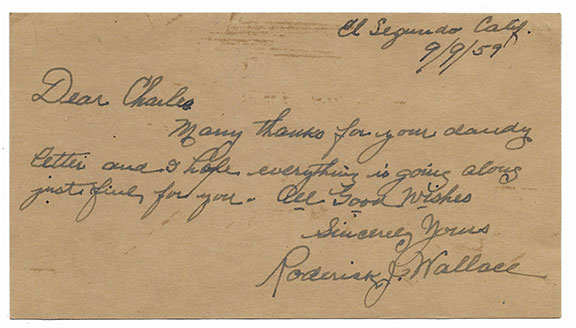 El Segundo Calif.
9/9/59
Dear Charles
Many thanks for your dandy
letter and I hope everything is going along
just fine for you. All Good Wishes
Sincerely Yours
Roderick J. Wallace